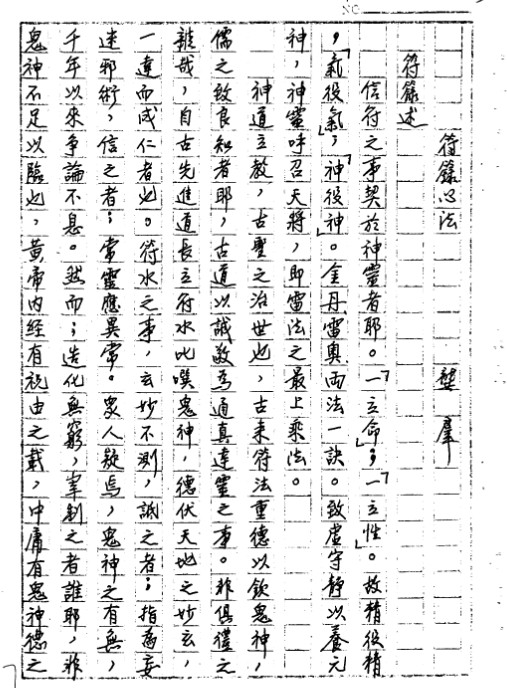 NO.
符籙心法 龔羣
符籙述
信符之事契於神靈者耶。「一立命」;「一立性」。故精役精
,「氣役氣」,「神役神」。金丹雷奧両法一訣。致虛守静以養元
神,神靈呼召天將,即雷法之最上乘法。
神道立教,古聖之治世也,古来符法重德以欽鬼神,
儒之致良知者耶,古道以誠敬為通真達靈之事。非俱禮之
雜哉,自古先進道長立符水叱噀鬼神,德伏天地之妙玄,
一達而成仁者也。符水之事,玄妙不測,詆之者;指為妄
迷邪術,信之者;常靈應異常。衆人疑焉,鬼神之有無,
千年以來爭論不息。然而;造化無窮,宰制之者誰耶,非
鬼神不足以臨也,黃帝内经有祝由之載,中庸有鬼神德之